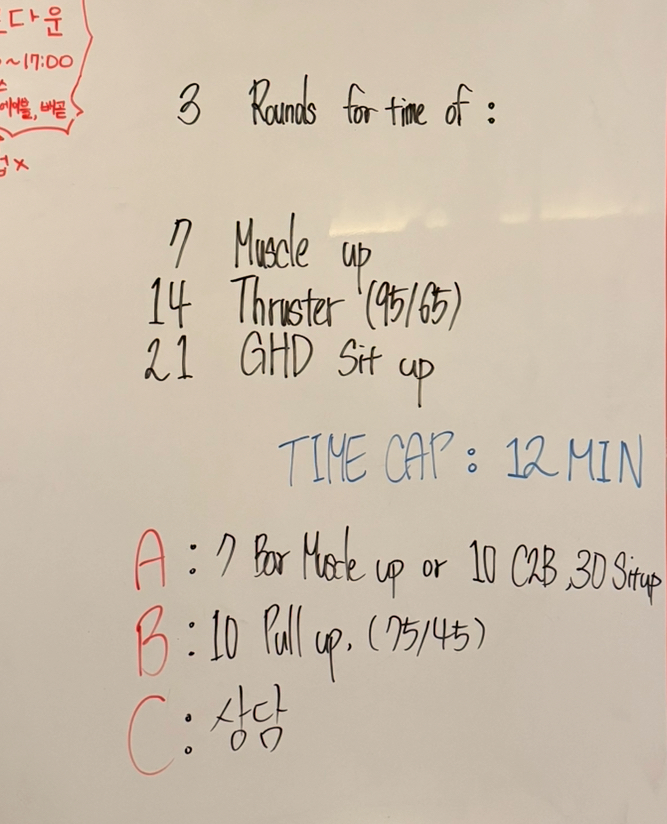 다운
~17:00
베곧
x
3 Rounds for time of :
7 Muscle up
14 Thruster (95/65)
21 GHD Sit up
TIME CAP : 12 MIN
A : 7 Bar Muscle up or 10 C2B, 30 Situp
B : 10 Pull up. (75/45)
C : 상담